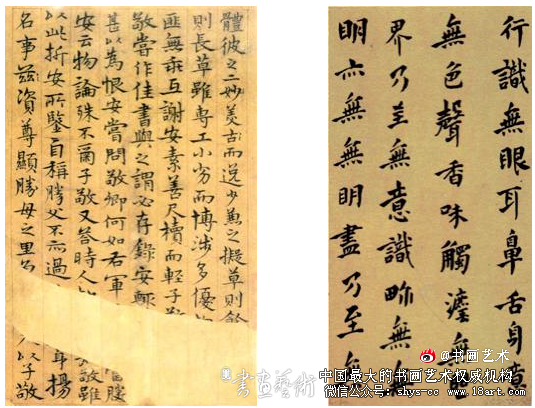 體彼之二妙美古而逸少兼之擬草則餘
則長草雖專工小劣而博涉多優
匪無乖互謝安素善尺牘而輕子敬
敬嘗作佳書與之謂必存錄安輒
甚以為恨安嘗問敬卿何如右軍 勝
安云物論殊不爾子敬又答時人 敬雖
以此折安所鑒自稱勝父不亦過 身揚
名事茲資尊顯勝母之里 以子敬
行識無眼耳鼻舌身意
無色聲香味觸法無
界乃至無意識界無無
明亦無無明盡乃至無
書畫藝術
@书画艺术
中国最大的书画艺术权威机构
微信公众号: shys--cc www.18art.com